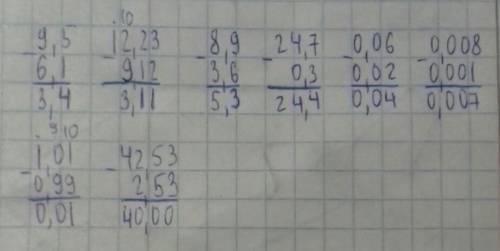 .10
9,5 12,23 8,9 24,7 0,06 0,008
- 6,1 - 9,12 - 3,6 - 0,3 - 0,02 - 0,001
3,4 3,11 5,3 24,4 0,04 0,007
. 9 10
1,01 42,53
- 0,99 - 2,53
0,01 40,00